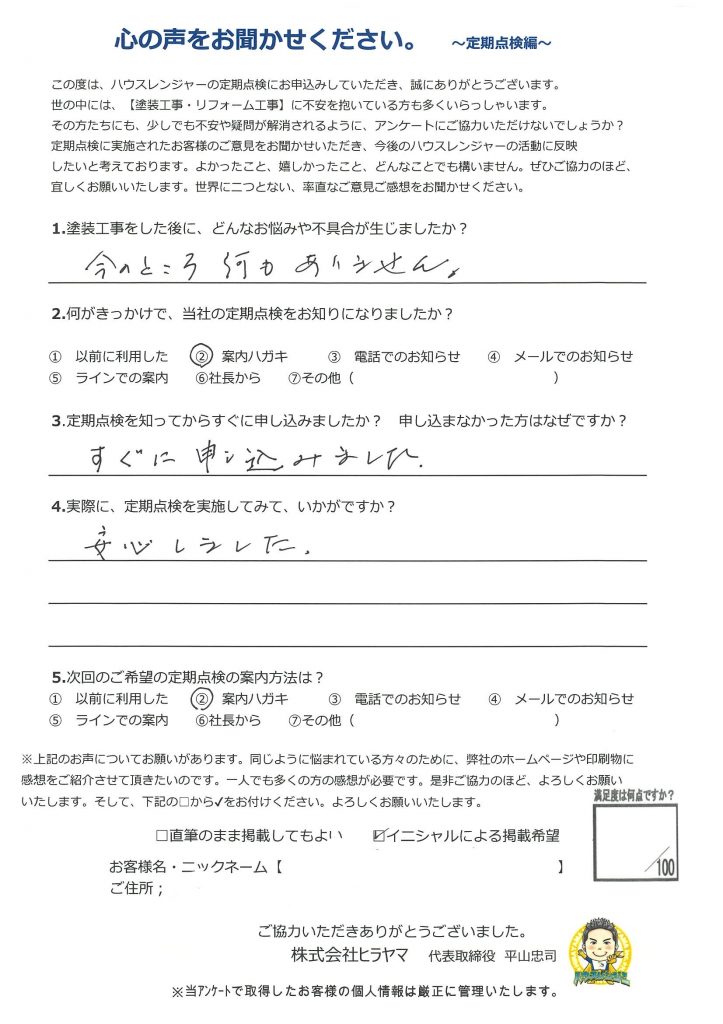 心の声をお聞かせください。 ～定期点検編～
この度は、ハウスレンジャーの定期点検にお申込みしていただき、誠にありがとうございます。
世の中には、【塗装工事・リフォーム工事】に不安を抱いている方も多くいらっしゃいます。
その方たちにも、少しでも不安や疑問が解消されるように、アンケートにご協力いただけないでしょうか？
定期点検に実施されたお客様のご意見をお聞かせいただき、今後のハウスレンジャーの活動に反映
したいと考えております。よかったこと、嬉しかったこと、どんなことでも構いません。ぜひご協力のほど、
宜しくお願いいたします。世界に二つとない、率直なご意見ご感想をお聞かせください。
1.塗装工事をした後に、どんなお悩みや不具合が生じましたか？
今のところ 何も ありません。
2.何がきっかけで、当社の定期点検をお知りになりましたか？
① 以前に利用した ② 案内ハガキ ③ 電話でのお知らせ ④ メールでのお知らせ
⑤ ラインでの案内 ⑥社長から ⑦その他（ ）
3.定期点検を知ってからすぐに申し込みましたか？ 申し込まなかった方はなぜですか？
すぐに 申し込みました.
4.実際に、定期点検を実施してみて、いかがですか？
安心しました.
5.次回のご希望の定期点検の案内方法は？
① 以前に利用した ② 案内ハガキ ③ 電話でのお知らせ ④ メールでのお知らせ
⑤ ラインでの案内 ⑥社長から ⑦その他（ ）
※上記のお声についてお願いがあります。同じように悩まれている方々のために、弊社のホームページや印刷物に
感想をご紹介させて頂きたいのです。一人でも多くの方の感想が必要です。是非ご協力のほど、よろしくお願い
いたします。そして、下記の□から✓をお付けください。よろしくお願いいたします。
満足度は何点ですか？
／100
□直筆のまま掲載してもよい ☑イニシャルによる掲載希望
お客様名・ニックネーム【 】
ご住所；
ご協力いただきありがとうございました。
株式会社ヒラヤマ 代表取締役 平山忠司
※当アンケートで取得したお客様の個人情報は厳正に管理いたします。